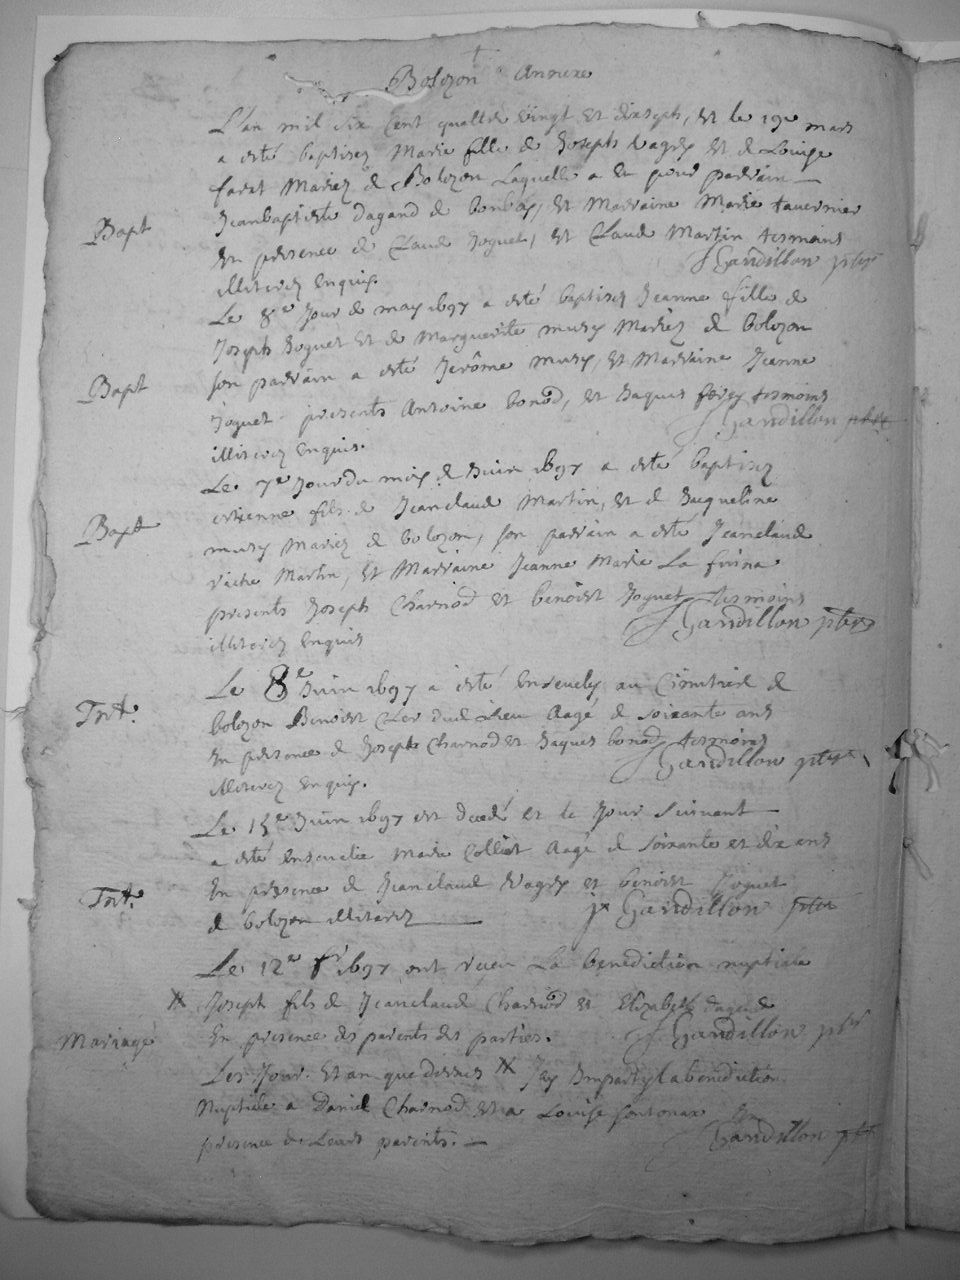 Bolozon Annexe
L'an mil six cent quattre vingt et dixseph, et le 19e mars
a esté baptisez Marie fille de Joseph vagry et de Louise
farat Mariez de Bolozon Laquelle a eu pour parrain
Bapt Jeanbaptiste dagand de bombois, et Marraine Marie tavernier
En presence de Claud Joguet, et Claud Martin tesmoins
illiterez Enquis. J Gandillon ptre
Le 8e Jour de may 1697 a esté baptisez Jeanne fille de
Joseph Joguet et de Marguerite mury Mariez de bolozon
Bapt son parrain a esté Jerôme mury, et Marraine Jeanne
Joguet. presents Antoine bonod, et Jaques ferey tesmoins
illiterez Enquis. J Gandillon ptre
Le 7e Jour du mois de Juin 1697 a esté baptisez
Bapt estienne fils de Jeanclaud Martin, et de Jacqueline
mury Mariez de bolozon, son parrain a esté Jeanclaude
Martin, et Marraine Jeanne Marie La
presents Joseph Charnod et benoist Joguet tesmoins
illiterez Enquis J Gandillon ptre
Le 8e Juin 1697 a esté Ensevely au Cimetiere de
Trt. bolozon Benoist Cler dud Lieu Aagé de soixante ans
En presence de Joseph Charnod et Jaques bonod tesmoins
illiterez Enquis. J Gandillon ptre
Le 15e Juin 1697 est decedé et le Jour suivant
a esté Ensevelie Marie Colliet Aagé de soixante et dix ans
Trt. En presence de Jeanclaud vagry et benoist Joguet
de bolozon illiterez J Gandillon ptre
Le 12e 1697 ont receu La benediction nuptiale
Joseph fils de Jeanclaud Charnod et Elizabeth dagand
Mariage En presence des parents des parties. J Gandillon ptre
Les Jour Et an que dessus Jay Imparty la benediction
Nuptiale a Daniel Charnod et a Louise fontenax En
presence de Leurs parents. Gandillon ptre